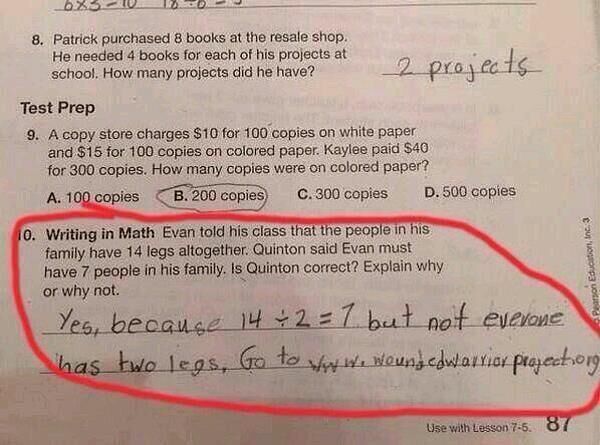 6x5=10 18÷6=3
8. Patrick purchased 8 books at the resale shop.
He needed 4 books for each of his projects at
school. How many projects did he have?
2 projects
Test Prep
9. A copy store charges $10 for 100 copies on white paper
and $15 for 100 copies on colored paper. Kaylee paid $40
for 300 copies. How many copies were on colored paper?
A. 100 copies B. 200 copies C. 300 copies D. 500 copies
10. Writing in Math Evan told his class that the people in his
family have 14 legs altogether. Quinton said Evan must
have 7 people in his family. Is Quinton correct? Explain why
or why not.
Yes, because 14 ÷ 2 = 7 but not everone
has two legs, Go to www.woundedwarriorproject.org
Use with Lesson 7-5. 87
Pearson Education, Inc. 3